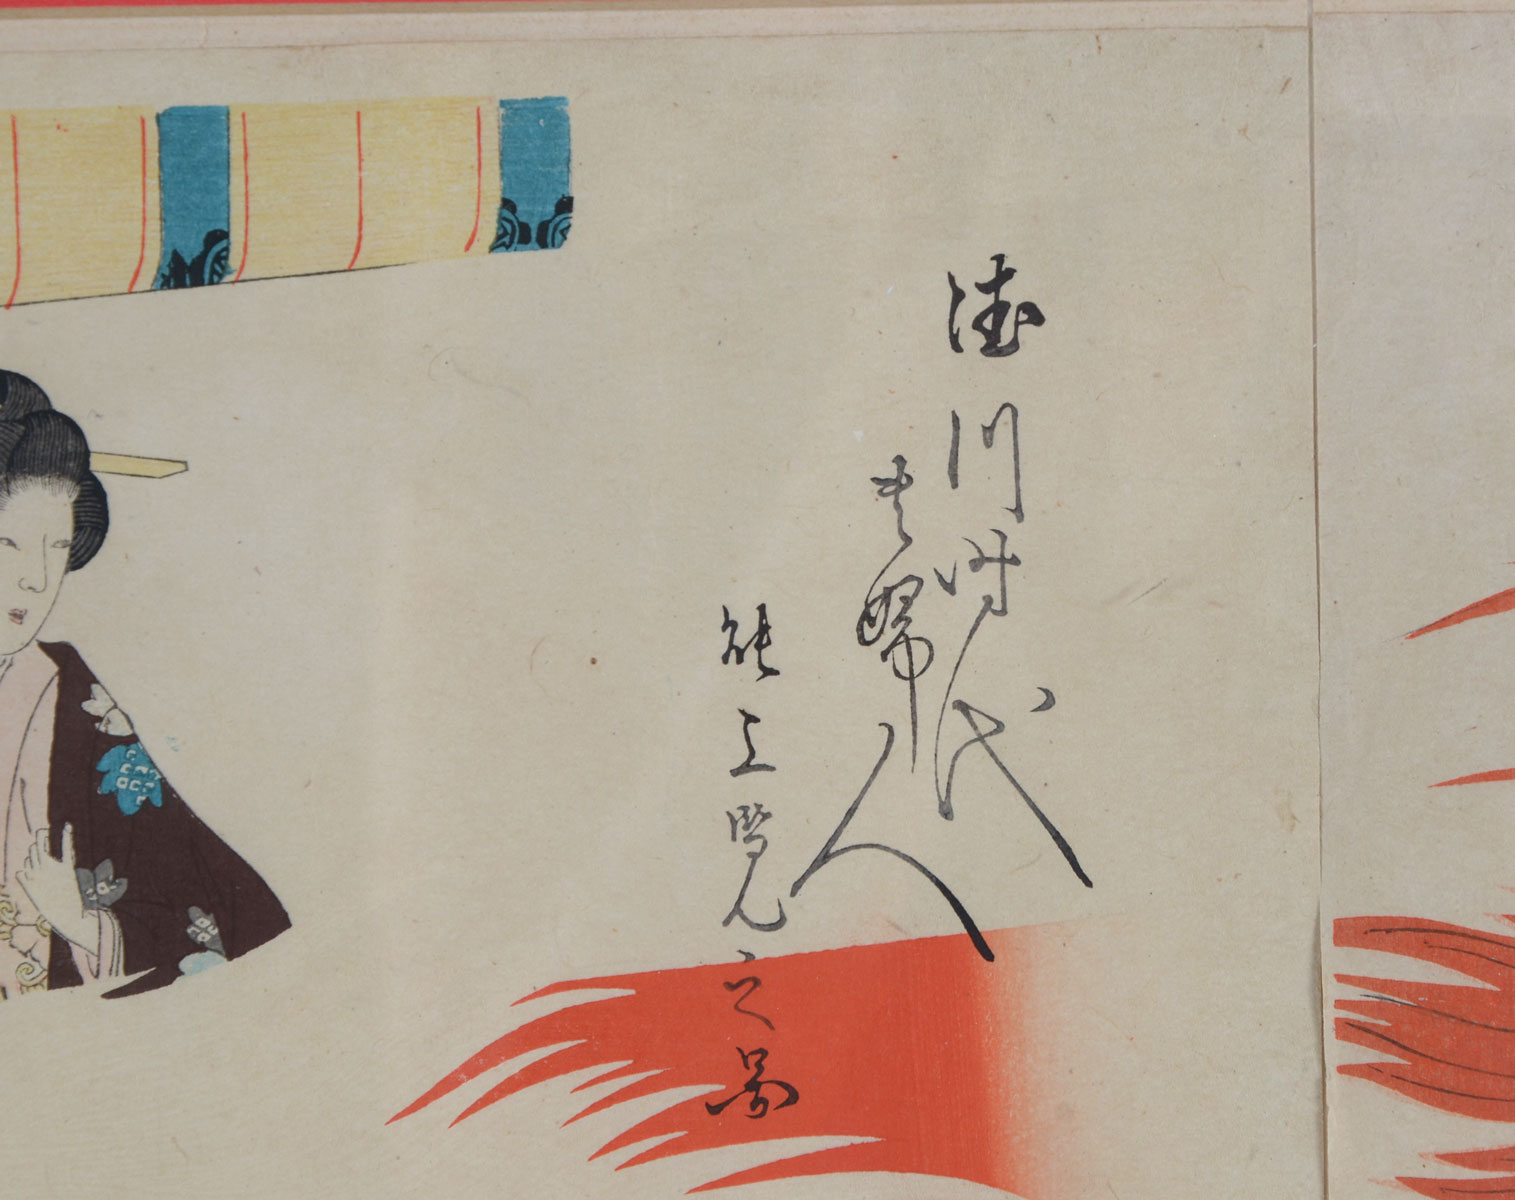 徳川時代
貴婦人
能上覧之図